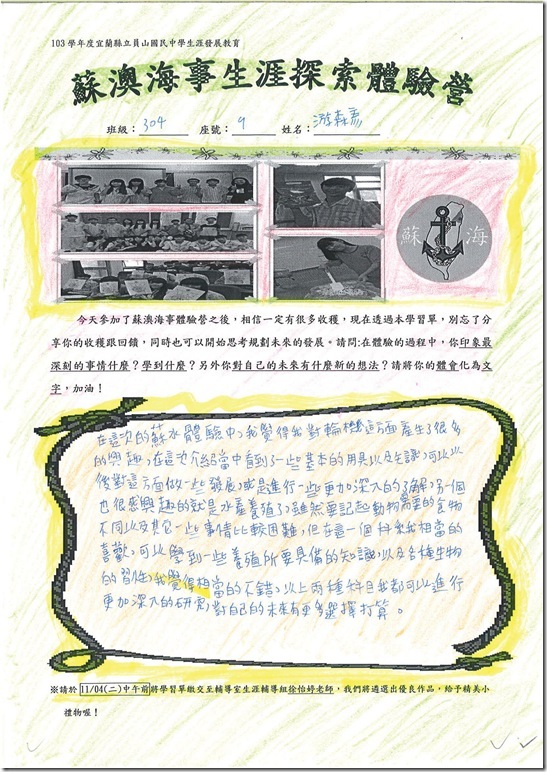 103學年度宜蘭縣立員山國民中學生涯發展教育
蘇澳海事生涯探索體驗營
班級：304 座號：9 姓名：游森彥
蘇 海
今天參加了蘇澳海事體驗營之後，相信一定有很多收穫，現在透過本學習單，別忘了分
享你的收穫跟回饋，同時也可以開始思考規劃未來的發展。請問：在體驗的過程中，你印象最
深刻的事情什麼？學到什麼？另外你對自己的未來有什麼新的想法？請將你的體會化為文
字，加油！
在這次的蘇水體驗中，我覺得我對輪機這方面產生了很多
的興趣，在這次介紹當中看到了一些基本的用具以及先識，可以以
後對這方面做一些發展，或是進行一些更加深入的了解，另一個
也很感興趣的就是水產養殖了，雖然要記起動物需要的食物
不同以及其它一些事情比較困難，但在這一個科系我相當的
喜歡，可以學到一些養殖所要具備的知識，以及各種生物
的習性，我覺得相當的不錯，以上兩種科目我都可以進行
更加深入的研究，對自己的未來有更多選擇打算。
※請於 11/04(二)中午前將學習單繳交至輔導室生涯輔導組徐怡婷老師，我們將遴選出優良作品，給予精美小
禮物喔！